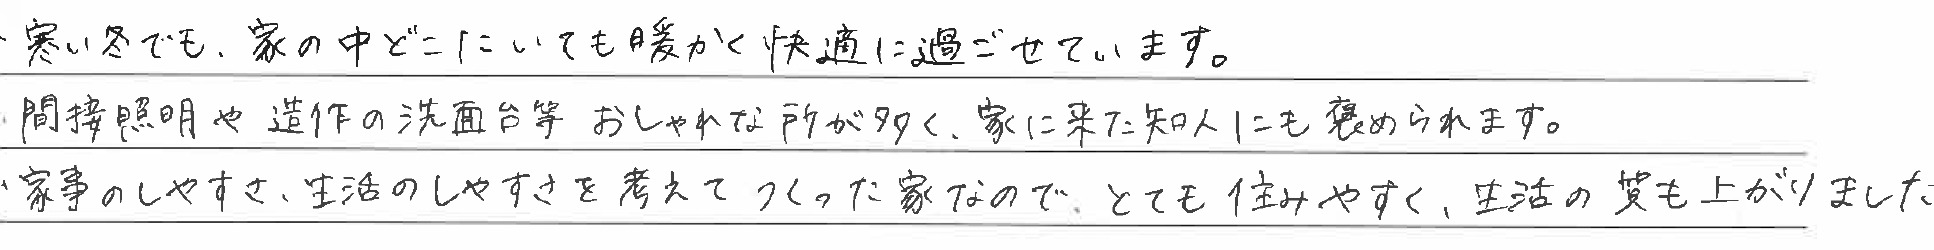 ・寒い冬でも、家の中どこにいても暖かく快適に過ごせています。
・間接照明や造作の洗面台等 おしゃれな所が多く、家に来た知人にも褒められます。
・家事のしやすさ、生活のしやすさを考えてつくった家なので、とても住みやすく、生活の質も上がりました